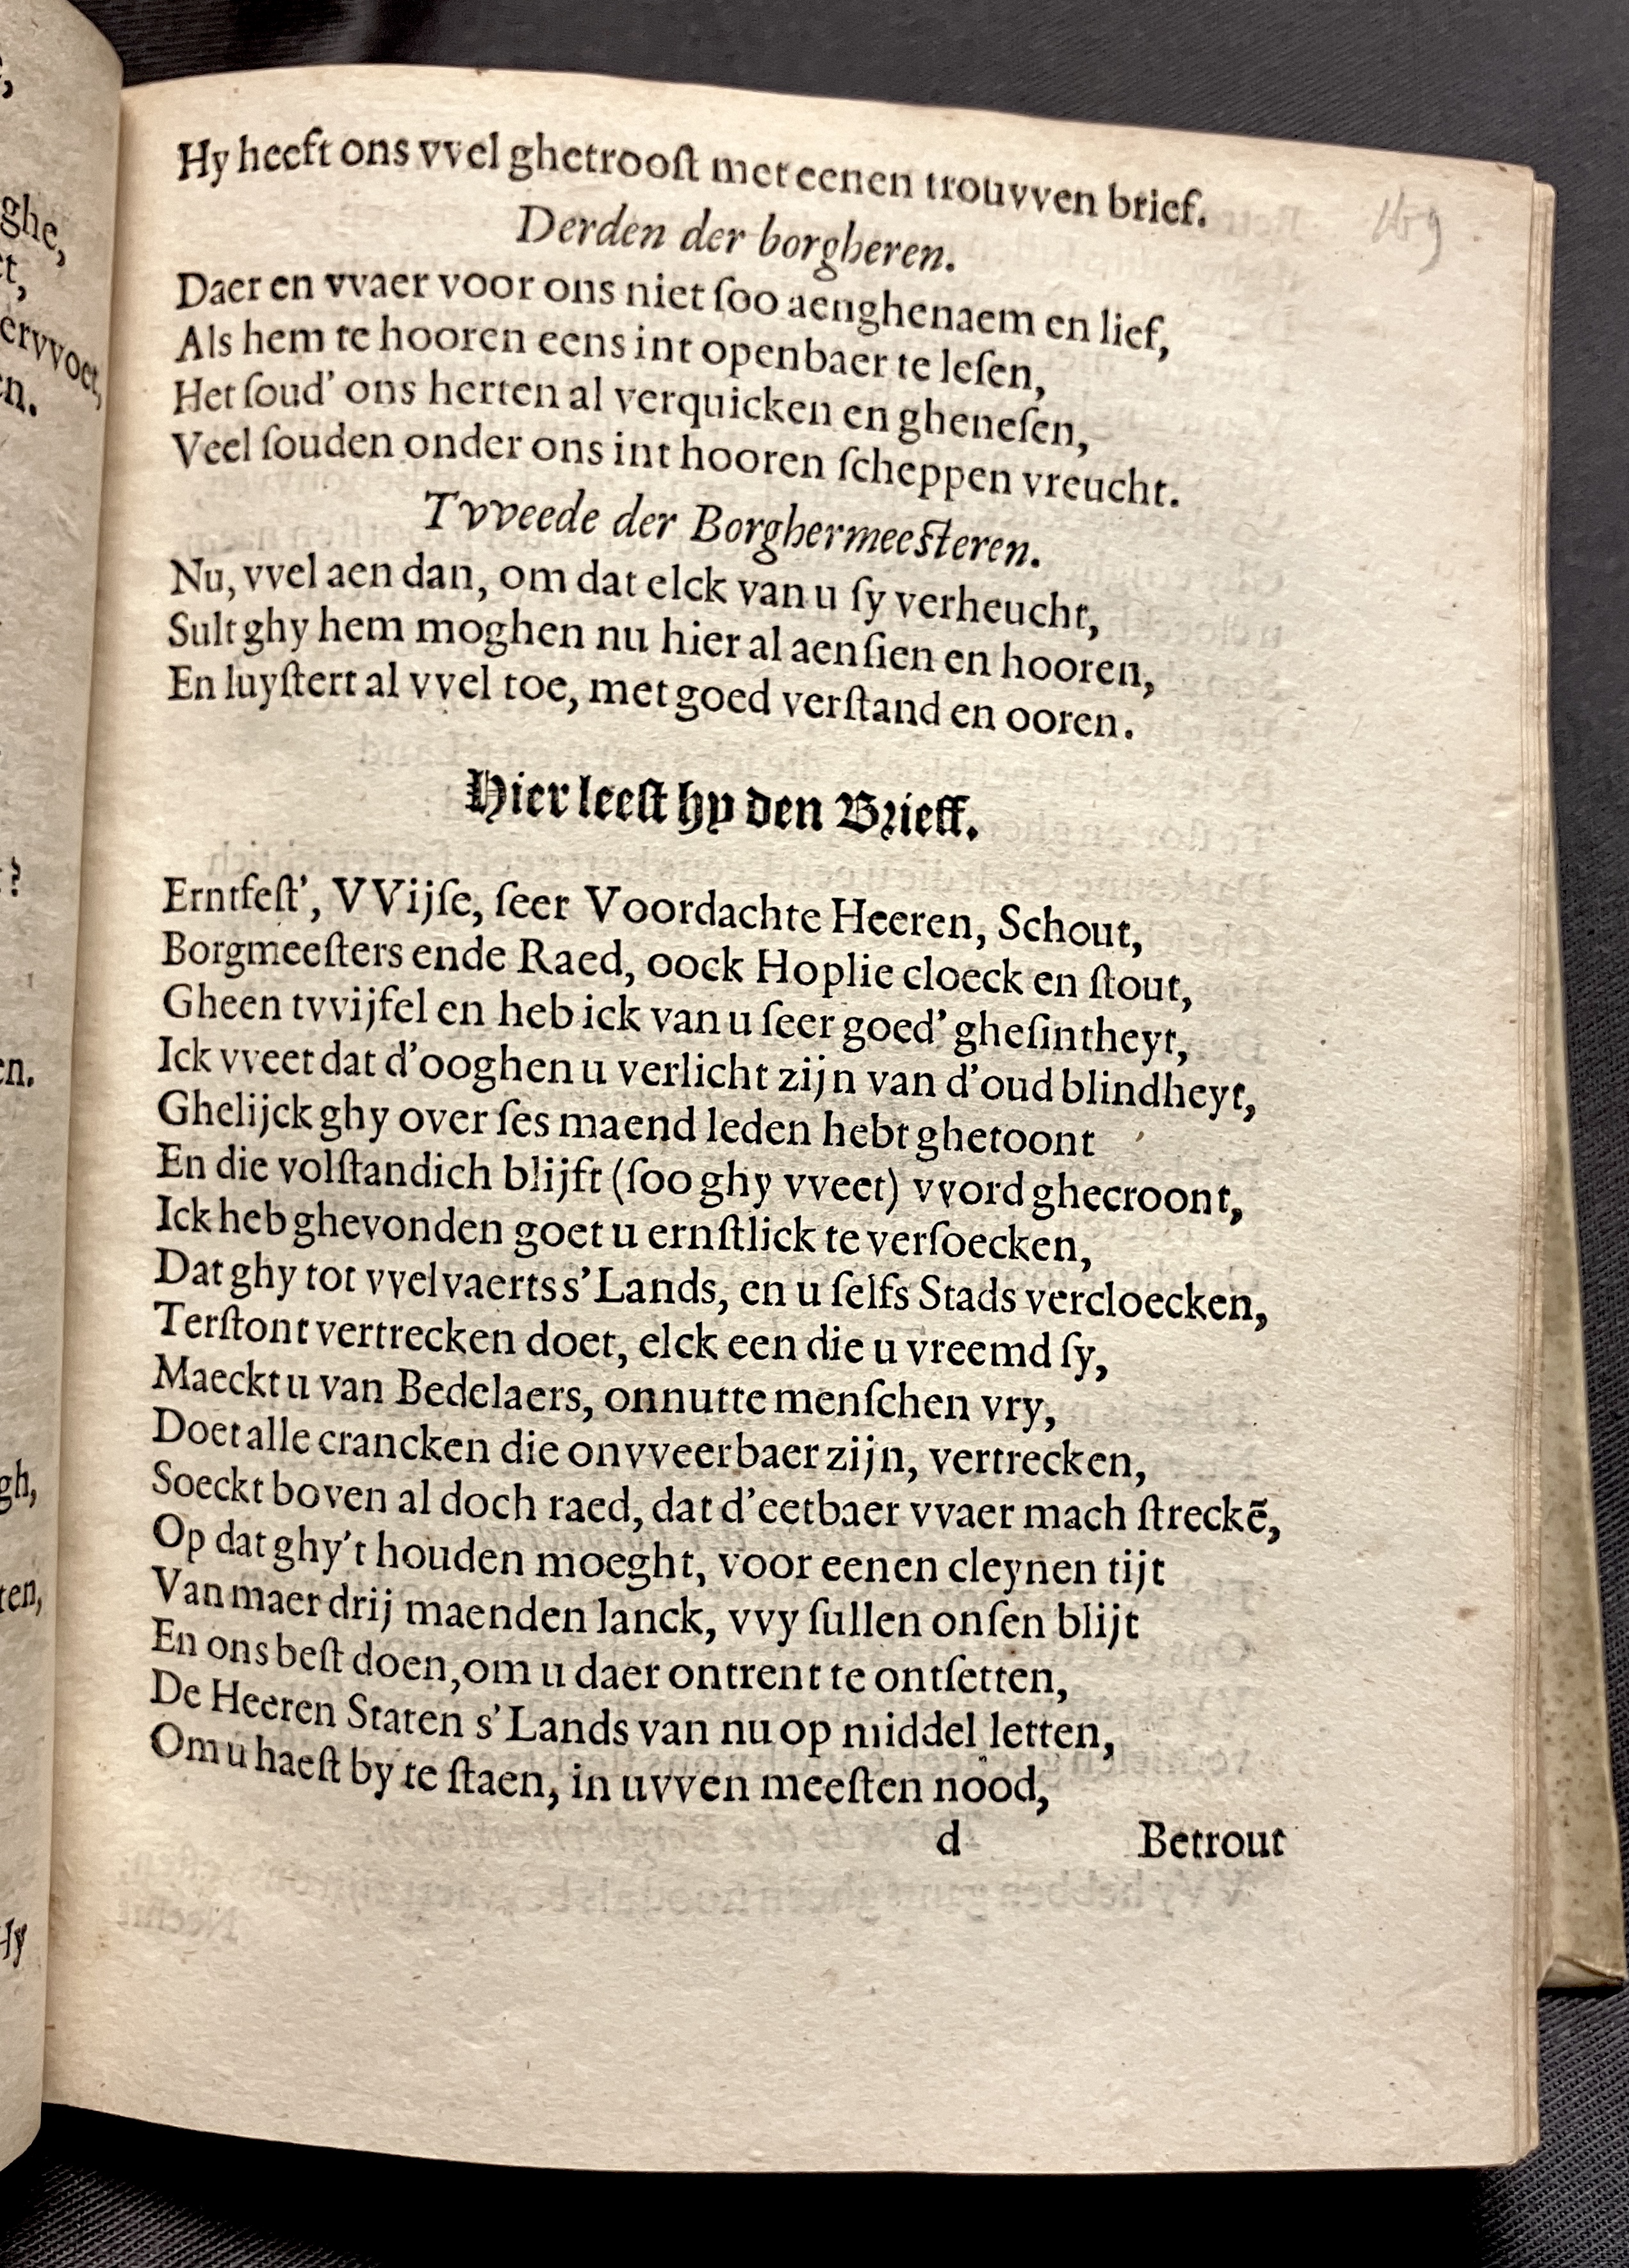 Hy heeft ons vvel ghetrooſt met eenen trouvven brief.
169
Derden der borgheren.
Daer en vvaer voor ons niet ſoo aenghenaem en lief,
Als hem te hooren eens int openbaer te leſen,
Het ſoud' ons herten al verquicken en gheneſen,
Veel ſouden onder ons int hooren ſcheppen vreucht.
Tvveede der Borghermeeſteren.
Nu, vvel aen dan, om dat elck van u ſy verheucht,
Sult ghy hem moghen nu hier al aenſien en hooren,
En luyſtert al vvel toe, met goed verſtand en ooren.
Hier leeſt hy den Brieff.
Erntfeſt', VVijſe, ſeer Voordachte Heeren, Schout,
Borgmeeſters ende Raed, oock Hoplie cloeck en ſtout,
Gheen tvvijfel en heb ick van u ſeer goed' gheſintheyt,
Ick vveet dat d'ooghen u verlicht zijn van d'oud blindheyt,
Ghelijck ghy over ſes maend leden hebt ghetoont
En die volſtandich blijft (ſoo ghy vveet) vvord ghecroont,
Ick heb ghevonden goet u ernſtlick te verſoecken,
Dat ghy tot vvelvaerts s'Lands, en u ſelfs Stads vercloecken,
Terſtont vertrecken doet, elck een die u vreemd ſy,
Maeckt u van Bedelaers, onnutte menſchen vry,
Doet alle crancken die onvveerbaer zijn, vertrecken,
Soeckt boven al doch raed, dat d'eetbaer vvaer mach ſtreckẽ,
Op dat ghy't houden moeght, voor eenen cleynen tijt
Van maer drij maenden lanck, vvy ſullen onſen blijt
En ons beſt doen, om u daer ontrent te ontſetten,
De Heeren Staten s'Lands van nu op middel letten,
Om u haeſt by te ſtaen, in uvven meeſten nood,
d Betrout